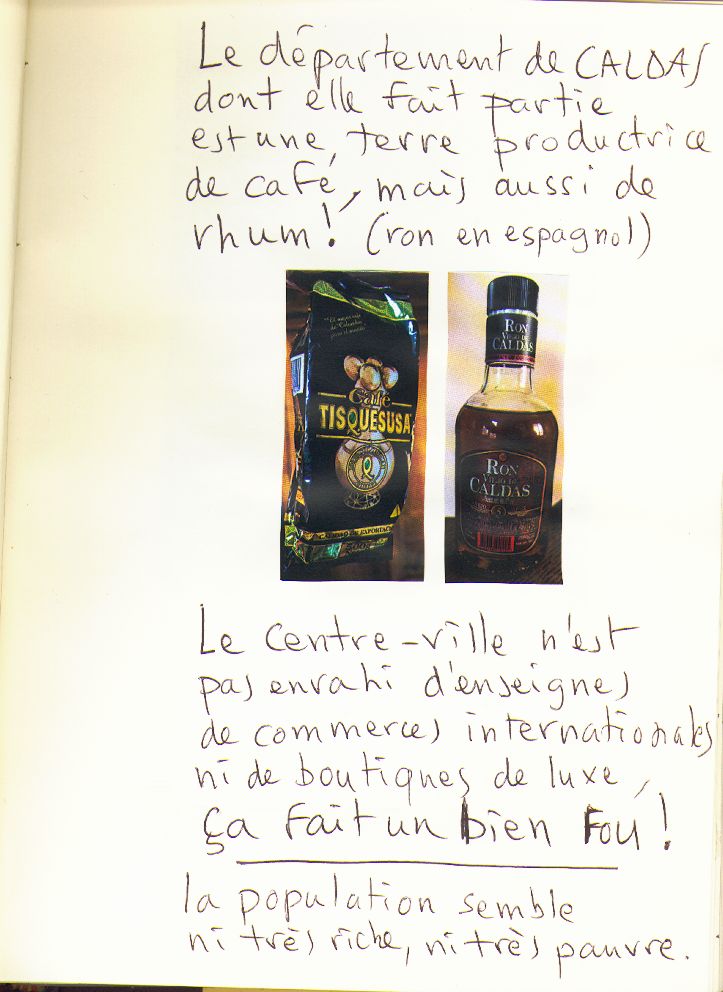 Le département de CALDAS
dont elle fait partie
est une, terre productrice
de café, mais aussi de
rhum! (ron en espagnol)
Café
TISQUESUSA
CALIDAD DE EXPORTACI
RON
VIEJO DE
CALDAS
RON
VIEJO DE
CALDAS
5
Le centre-ville n'est
pas envahi d'enseignes
de commerces internationales
ni de boutiques de luxe,
ça fait un bien fou!
la population semble
ni très riche, ni très pauvre.